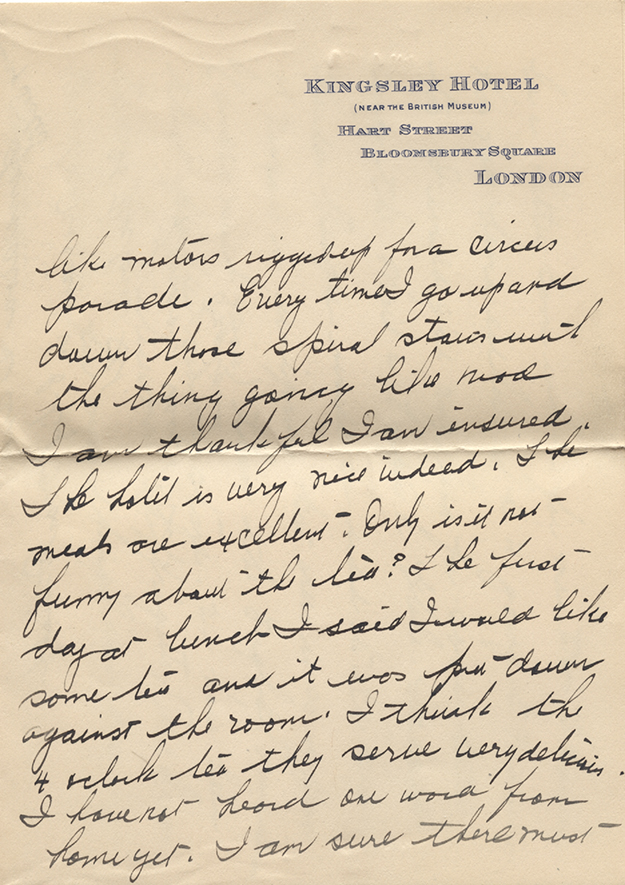 KINGSLEY HOTEL
(NEAR THE BRITISH MUSEUM)
HART STREET
BLOOMSBURY SQUARE
LONDON
like motors rigged up for a circus
parade. Every time I go up and
down those spiral stairs with
the thing going like mad
I am thankful I am insured.
The hotel is very nice indeed. The
meals are excellent. Only is it not
funny about the tea? The first
day at lunch I said I would like
some tea and it was put down
against the room. I think the
4 oclock tea they serve very delicious.
I have not heard one word from
home yet. I am sure there must